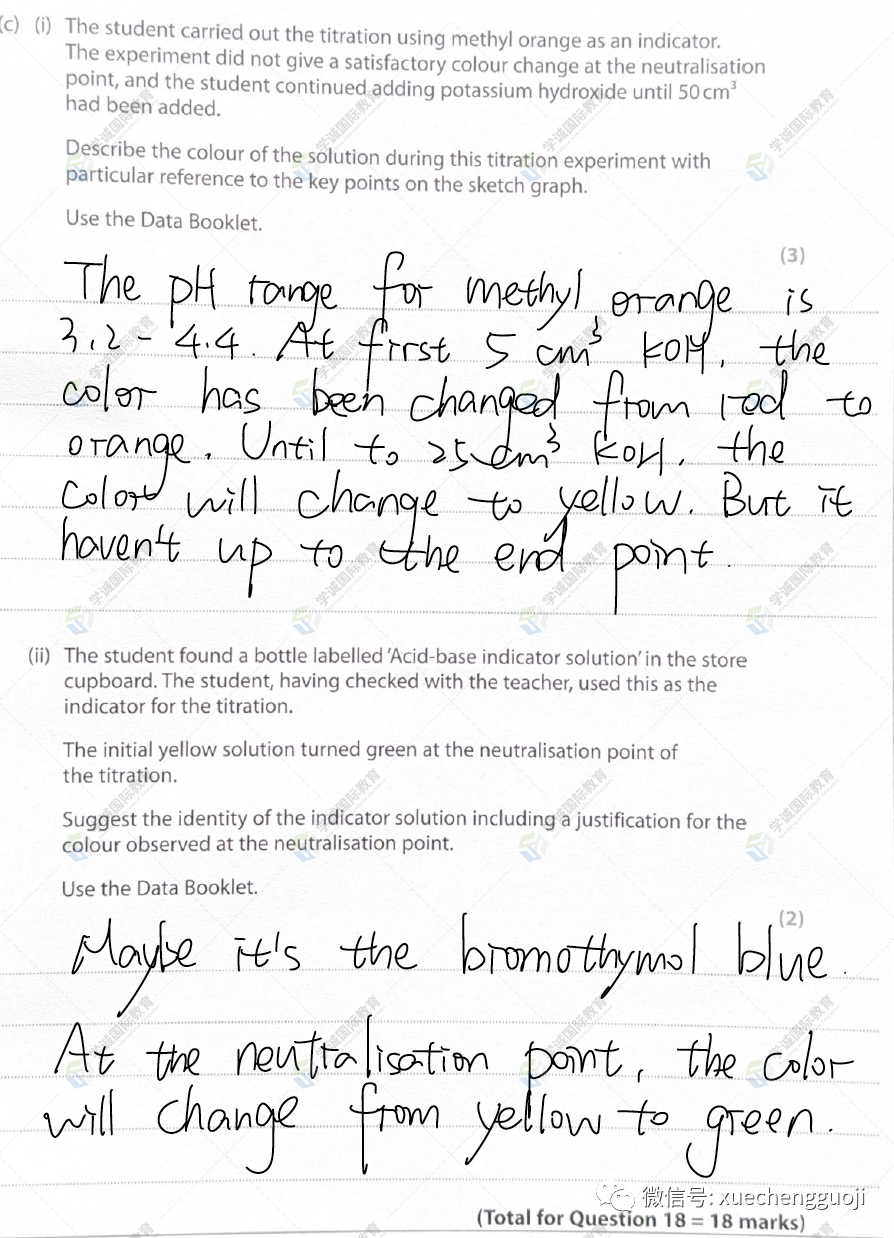 (c) (i) The student carried out the titration using methyl orange as an indicator.
The experiment did not give a satisfactory colour change at the neutralisation
point, and the student continued adding potassium hydroxide until 50 cm³
had been added.
Describe the colour of the solution during this titration experiment with
particular reference to the key points on the sketch graph.
Use the Data Booklet.
(3)
The pH range for methyl orange is
3.2 - 4.4. At first 5 cm³ KOH, the
color has been changed from red to
orange. Until to 25 cm³ KOH, the
color will change to yellow. But it
haven't up to the end point.
(ii) The student found a bottle labelled 'Acid-base indicator solution' in the store
cupboard. The student, having checked with the teacher, used this as the
indicator for the titration.
The initial yellow solution turned green at the neutralisation point of
the titration.
Suggest the identity of the indicator solution including a justification for the
colour observed at the neutralisation point.
Use the Data Booklet.
(2)
Maybe it's the bromothymol blue.
At the neutralisation point, the color
will change from yellow to green.
微信号: xuechengguoji
(Total for Question 18 = 18 marks)
学诚国际教育